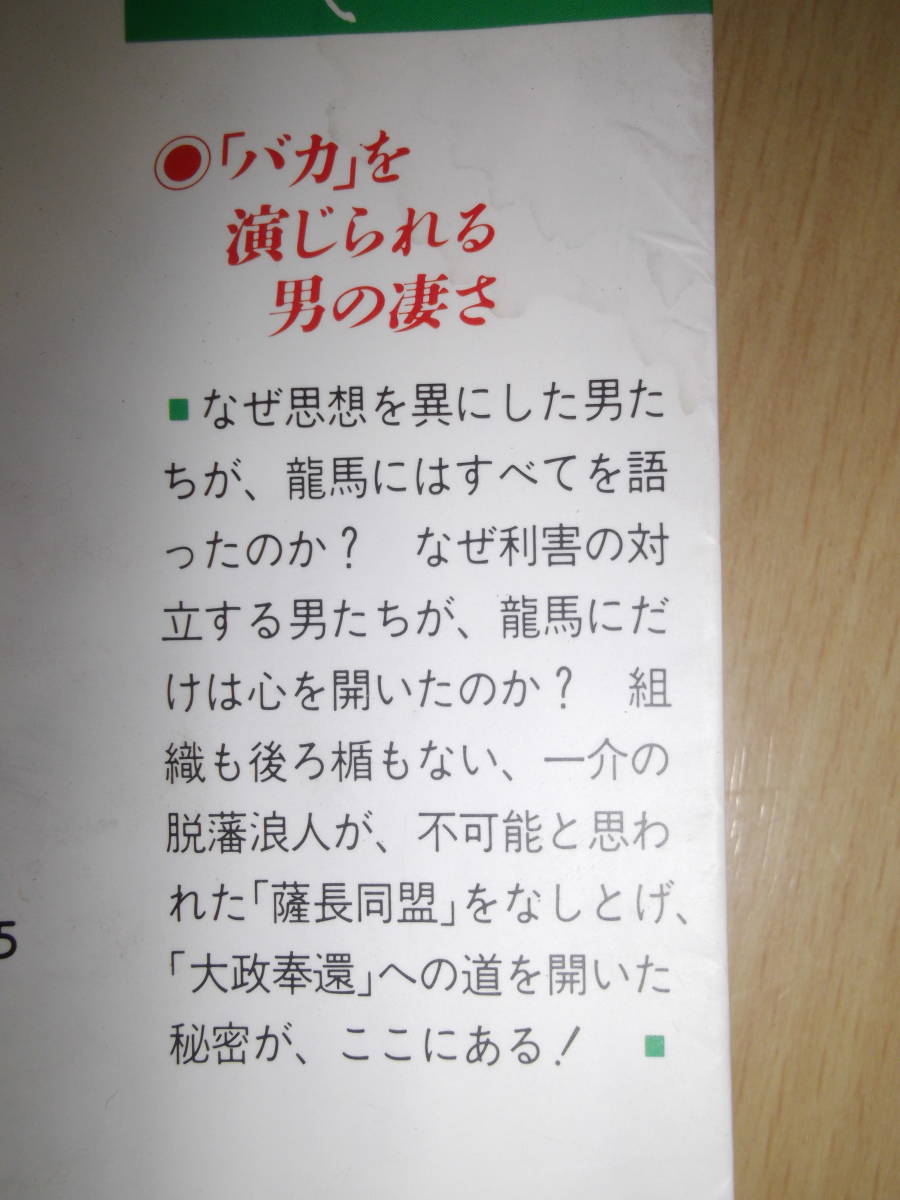 「バカ」を
演じられる
男の凄さ
なぜ思想を異にした男た
ちが、龍馬にはすべてを語
ったのか？　なぜ利害の対
立する男たちが、龍馬にだ
けは心を開いたのか？　組
織も後ろ楯もない、一介の
脱藩浪人が、不可能と思わ
れた「薩長同盟」をなしとげ、
「大政奉還」への道を開いた
秘密が、ここにある！
5